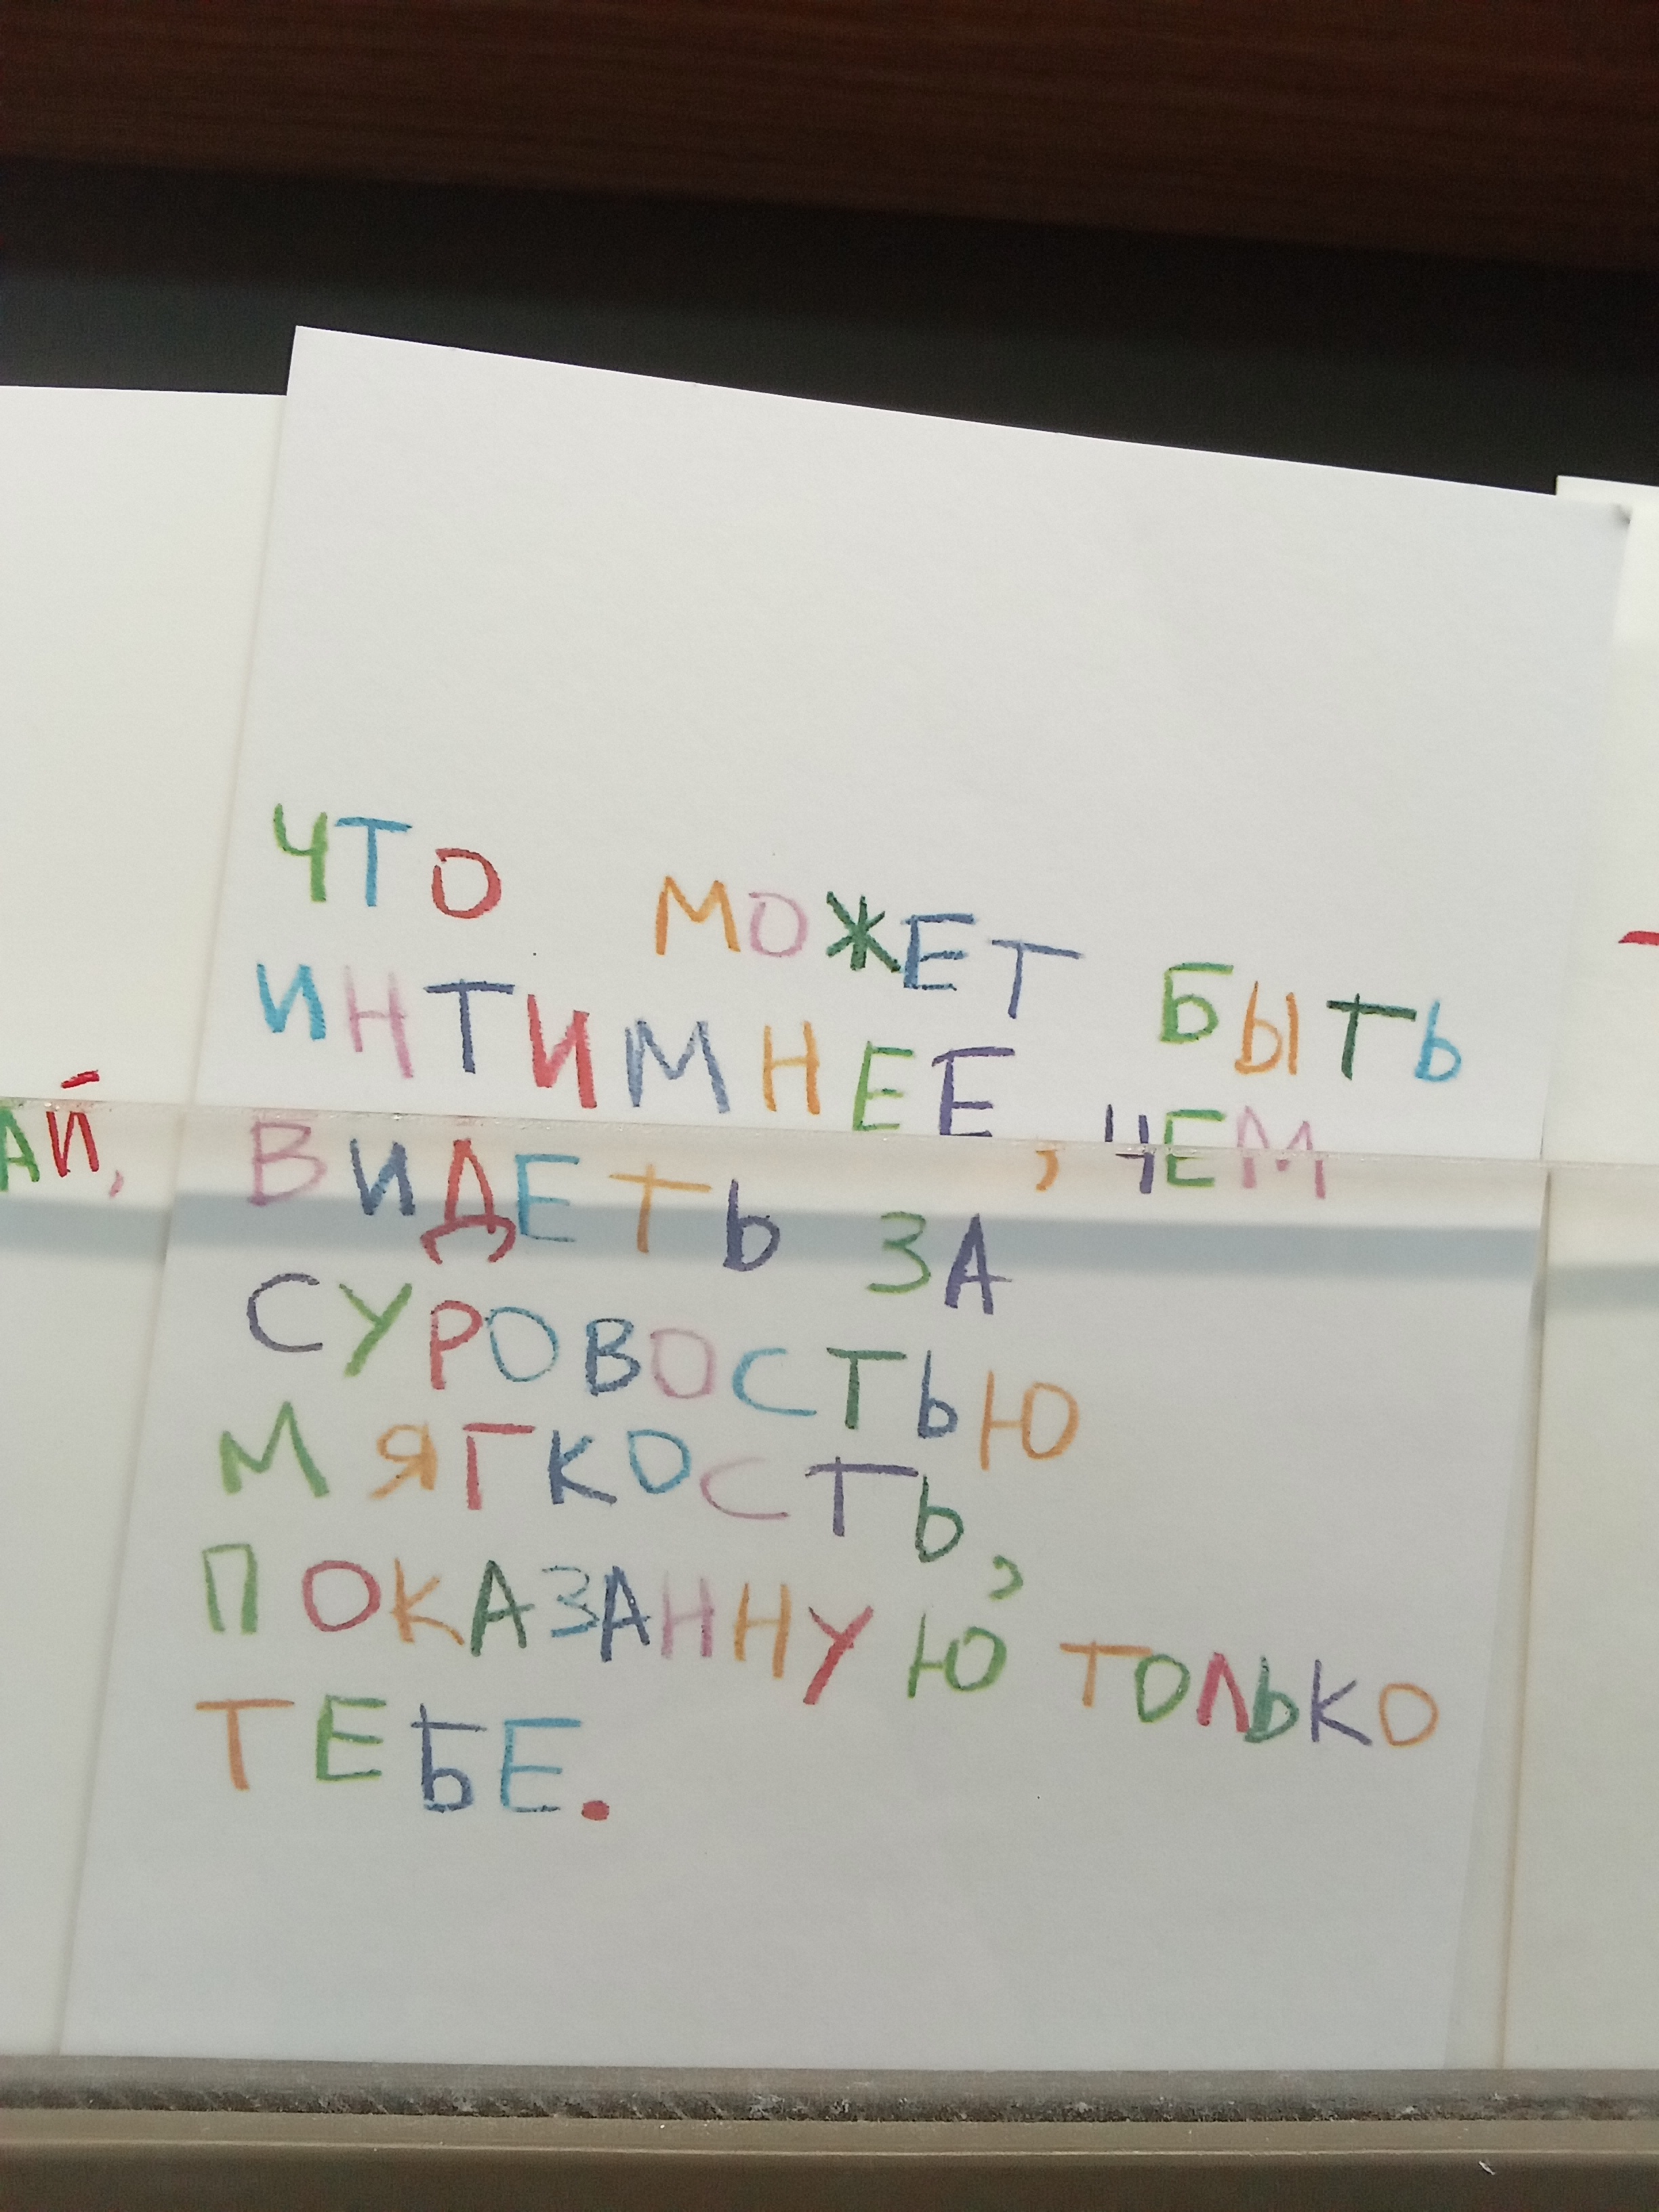 ЧТО МОЖЕТ БЫТЬ
ИНТИМНЕЕ, ЧЕМ
ВИДЕТЬ ЗА
СУРОВОСТЬЮ
МЯГКОСТЬ,
ПОКАЗАННУЮ ТОЛЬКО
ТЕБЕ.